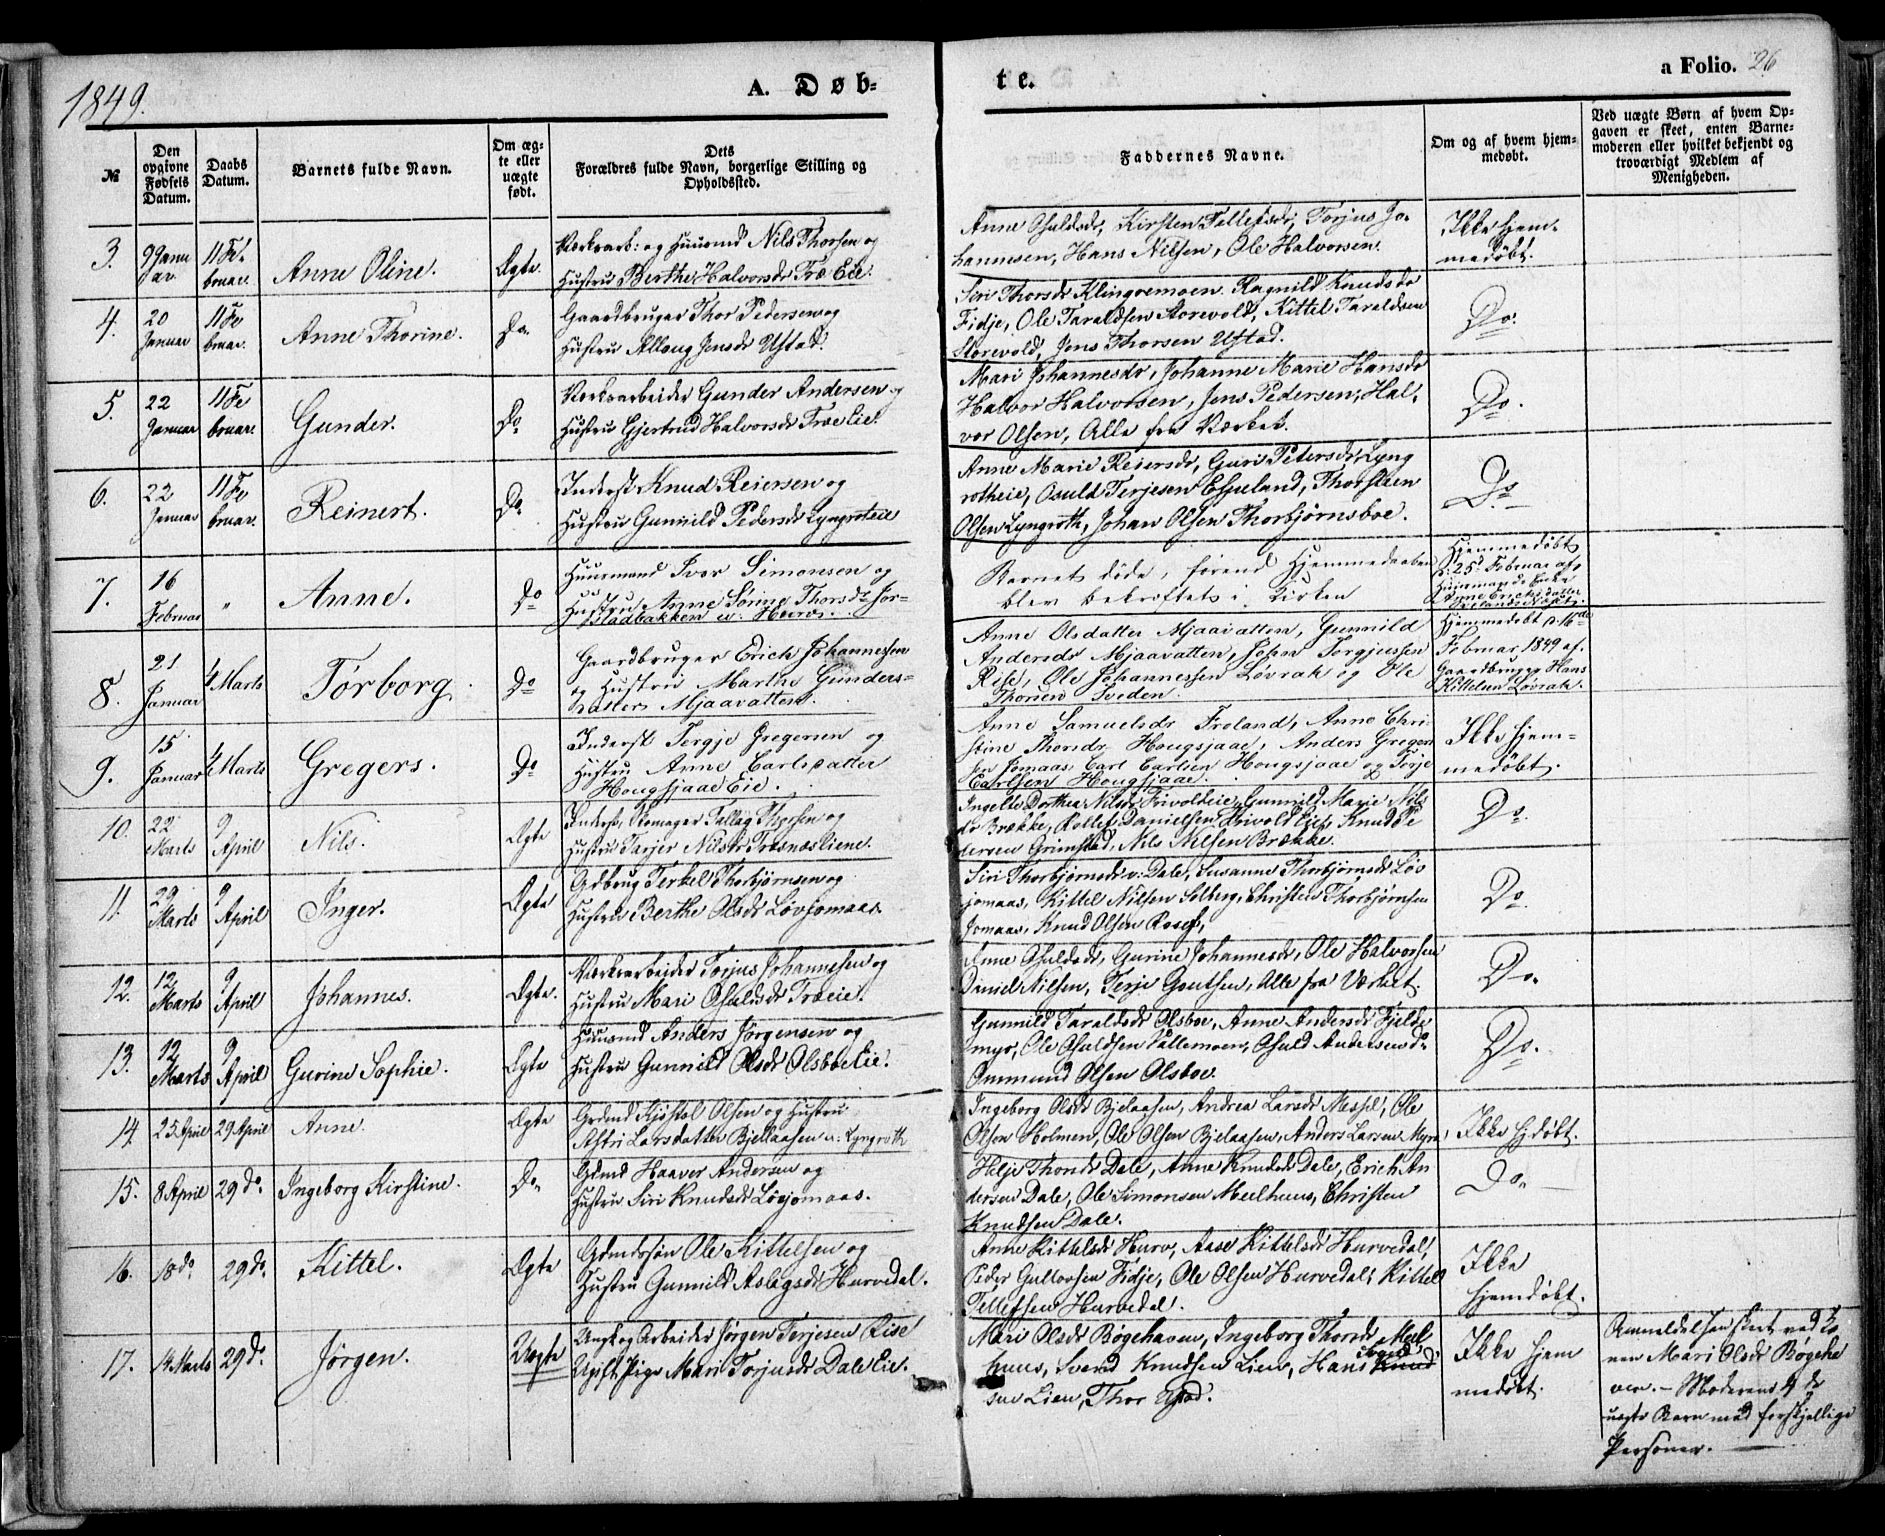 1849.
A. Døb-
te.
a Folio. 26
№
Den opgivne Fødsels Datum.
Daabs Datum.
Barnets fulde Navn.
Om ægte eller uægte født.
Dets
Forældres fulde Navn, borgerlige Stilling og
Opholdssted.
Faddernes Navne.
Om og af hvem hjem-
medøbt.
Ved uægte Børn af hvem Op-
gaven er skeet, enten Barne-
moderen eller hvilket bekjendt og
troværdigt Medlem af
Menigheden.
3.
9 Janu
ar
11 Fe
bruar.
Anne Oline.
Ægte.
Værksarb: og Huusmd Nils Thorsen og
Hustru Berthe Halvorsdr Træ Eie.
Anne Osuldsdr, Kirsten Tellefsdr, Torjus Jo-
hannesen, Hans Nilsen, Ole Halvorsen.
Ikke hjem-
medøbt.
4.
20
Januar
11 Fe
bruar.
Anne Thorine.
Do.
Gaardbruger Thor Pedersen og
Hustru Alloug Jensdr Ufstad.
Siri Thorsdr Klingremoen. Ragnild Knudsdr
Fidje, Ole Taraldsen Storevold, Kittel Taraldsen
Storevold, Jens Thorsen Ufstad.
Do.
5.
22
Januar
11 Fe
bruar.
Gunder.
Do
Værksarbeider Gunder Andersen og
Hustru Gjertrud Halvorsdr Træ Eie.
Mari Johannesdr, Johanne Marie Hansdr
Halvor Halvorsen, Jens Pedersen, Hal-
vor Olsen, Alle fra Værket.
Do.
6.
22
Januar
11 Fe
bruar.
Reinert.
Do
Inderst Knud Reiersen og
Hustru Gunnild Pedersdr Lyngroteie
Anne Marie Reiersdr, Guri Petersdr Lyng
rotheie, Osuld Terjesen Espeland, Thorsteen
Olsen Lyngroth, Johan Olsen Thorbjørnsboe.
Do
7.
16
Februar
"
Anne.
Do
Huusmand Iver Simonsen og
Hustru Anne Sørine Thorsdr Jor-
stadbakken u. Heiros.
Barnet døde, førend Hjemmedaaben
blev bekræftet i Kirken
Hjemmedøbt
d: 25d Februar af
Huusmands Enke
Anne Erichsdatter
8.
21
Januar
4 Marts
Torborg
Do
Gaardbruger Erich Johannessen
og Hustru Marthe Gunders-
datter Mjaavatten.
Anne Olsdatter Mjaavatten, Gunnild
Andersdr Mjaavatten, John Torgjussen
Rise, Ole Johannessen Løvrak og Ole
Thorsen Sveden.
Hjemmedøbt d: 16de
Februar 1849 af
Gaardbruger Hans
Kittelsen Løvrak.
9.
15
Januar
4 Marts
Gregers.
Do
Inderst Tergje Gregersen og
Hustru Anne Carlsdatter
Hougsjaae Eie.
Anne Samuelsdr Froland, Anne Chri-
stine Thorsdr Hougsjaae, Anders Gregers
en Jomaas. Carl Carlsen Hougsjaae og Terje
Carlsen Hougsjaae.
Ikke hjem-
medøbt.
10.
22
Marts
9
April
Nils.
Ægte
Inderst, Skomager Tallag Thorsen og
Hustru Tarjer Nilsdr Træsnæs Eiene.
Ingelte Dorthea Nilsdr Trivoldeie, Gunnild Marie Nils
dr Brække, Rollef Danielsen Trivold Eie, Knud Pe
dersen Grimstad, Nils Nilsen Brække.
Do.
11.
29
Marts
9
April
Inger.
Ægte
Gdbrug Terkel Thorbjørnsen og
Hustru Berthe Olsdr Løvjomaas.
Siri Thorbjørnsdr v: Dale, Susanne Thorbjørnsdr Løv
jomaas, Kittel Nilsen Solberg, Christen Thorbjørnsen
Jomaas, Knud Olsen Rosef,
Do.
12.
12
Marts
9
April
Johannes.
Ægte.
Værksarbeider Torjus Johannesen og
Hustru Mari Osuldsdr Træeie.
Anne Osuldsdr, Gurine Johannesdr, Ole Halvorsen
Daniel Nilsen, Terje Goutsen, Alle fra Værket.
Do.
13.
12
Marts
9
April
Gurine Sophie.
Ægte
Huusmd Anders Jørgensen og
Hustru Gunnild Olsdr Olsboe Eie.
Gunnild Taraldsdr Olsboe, Anne Andersdr Fjelde
myr, Ole Osuldsen Vallemoen, Osuld Andersen do
Ommund Olsen Olsboe.
Do.
14.
25 April
29 April
Anne.
Ægte
Grdmd Kjøstol Olsen og Hustru
Astri Larsdatter Bjellaasen u: Lyngroth
Ingeborg Olsdr Bjelaasen, Andrea Larsdr Messel, Ole
Olsen Holmen, Ole Olsen Bjelaasen, Anders Larsen Myra,
Ikke hjdøbt.
15.
8 April
29 do.
Ingeborg Kirstine.
Do.
Gdmd Haaver Andersen og
Hustru Siri Knudsdr Løvjomaas.
Helje Thorsdr Dale, Anne Knudsdr Dale, Erich An
dersen Dale, Ole Simonsen Meelhuus, Christen
Knudsen Dale.
Do.
16.
18 do.
29 do.
Kittel.
Ægte
Gdmdssøn Ole Kittelsen og
Hustru Gunnild Aslagsdr Hurvedal.
Anne Kittelsdr Hurv, Aase Kittelsdr Hurvedal,
Peder Gullovsen Fidje, Ole Olsen Hurvedal, Kittel
Tellefsen Hurvedal.
Ikke
hjemdøbt.
17.
14 Marts
29 do.
Jørgen.
Uægte
Ungk. og Arbeider Jørgen Terjesen Rise
Ugift Pige Mari Torjusdr Dale Eie.
Mari Olsdr Bøgehaven, Ingeborg Thorsdr Meel
huus, Svend Knudsen Lien, Hans Svend Knud
sen Lien, Thor Ufstad.
Ikke hjem
medøbt.
Anmeldelsen skeet ved Ko
nen Mari Olsdr Bøgeha
ven. – Moderens 4 de
uægte Barn med forskjellige
Personer.